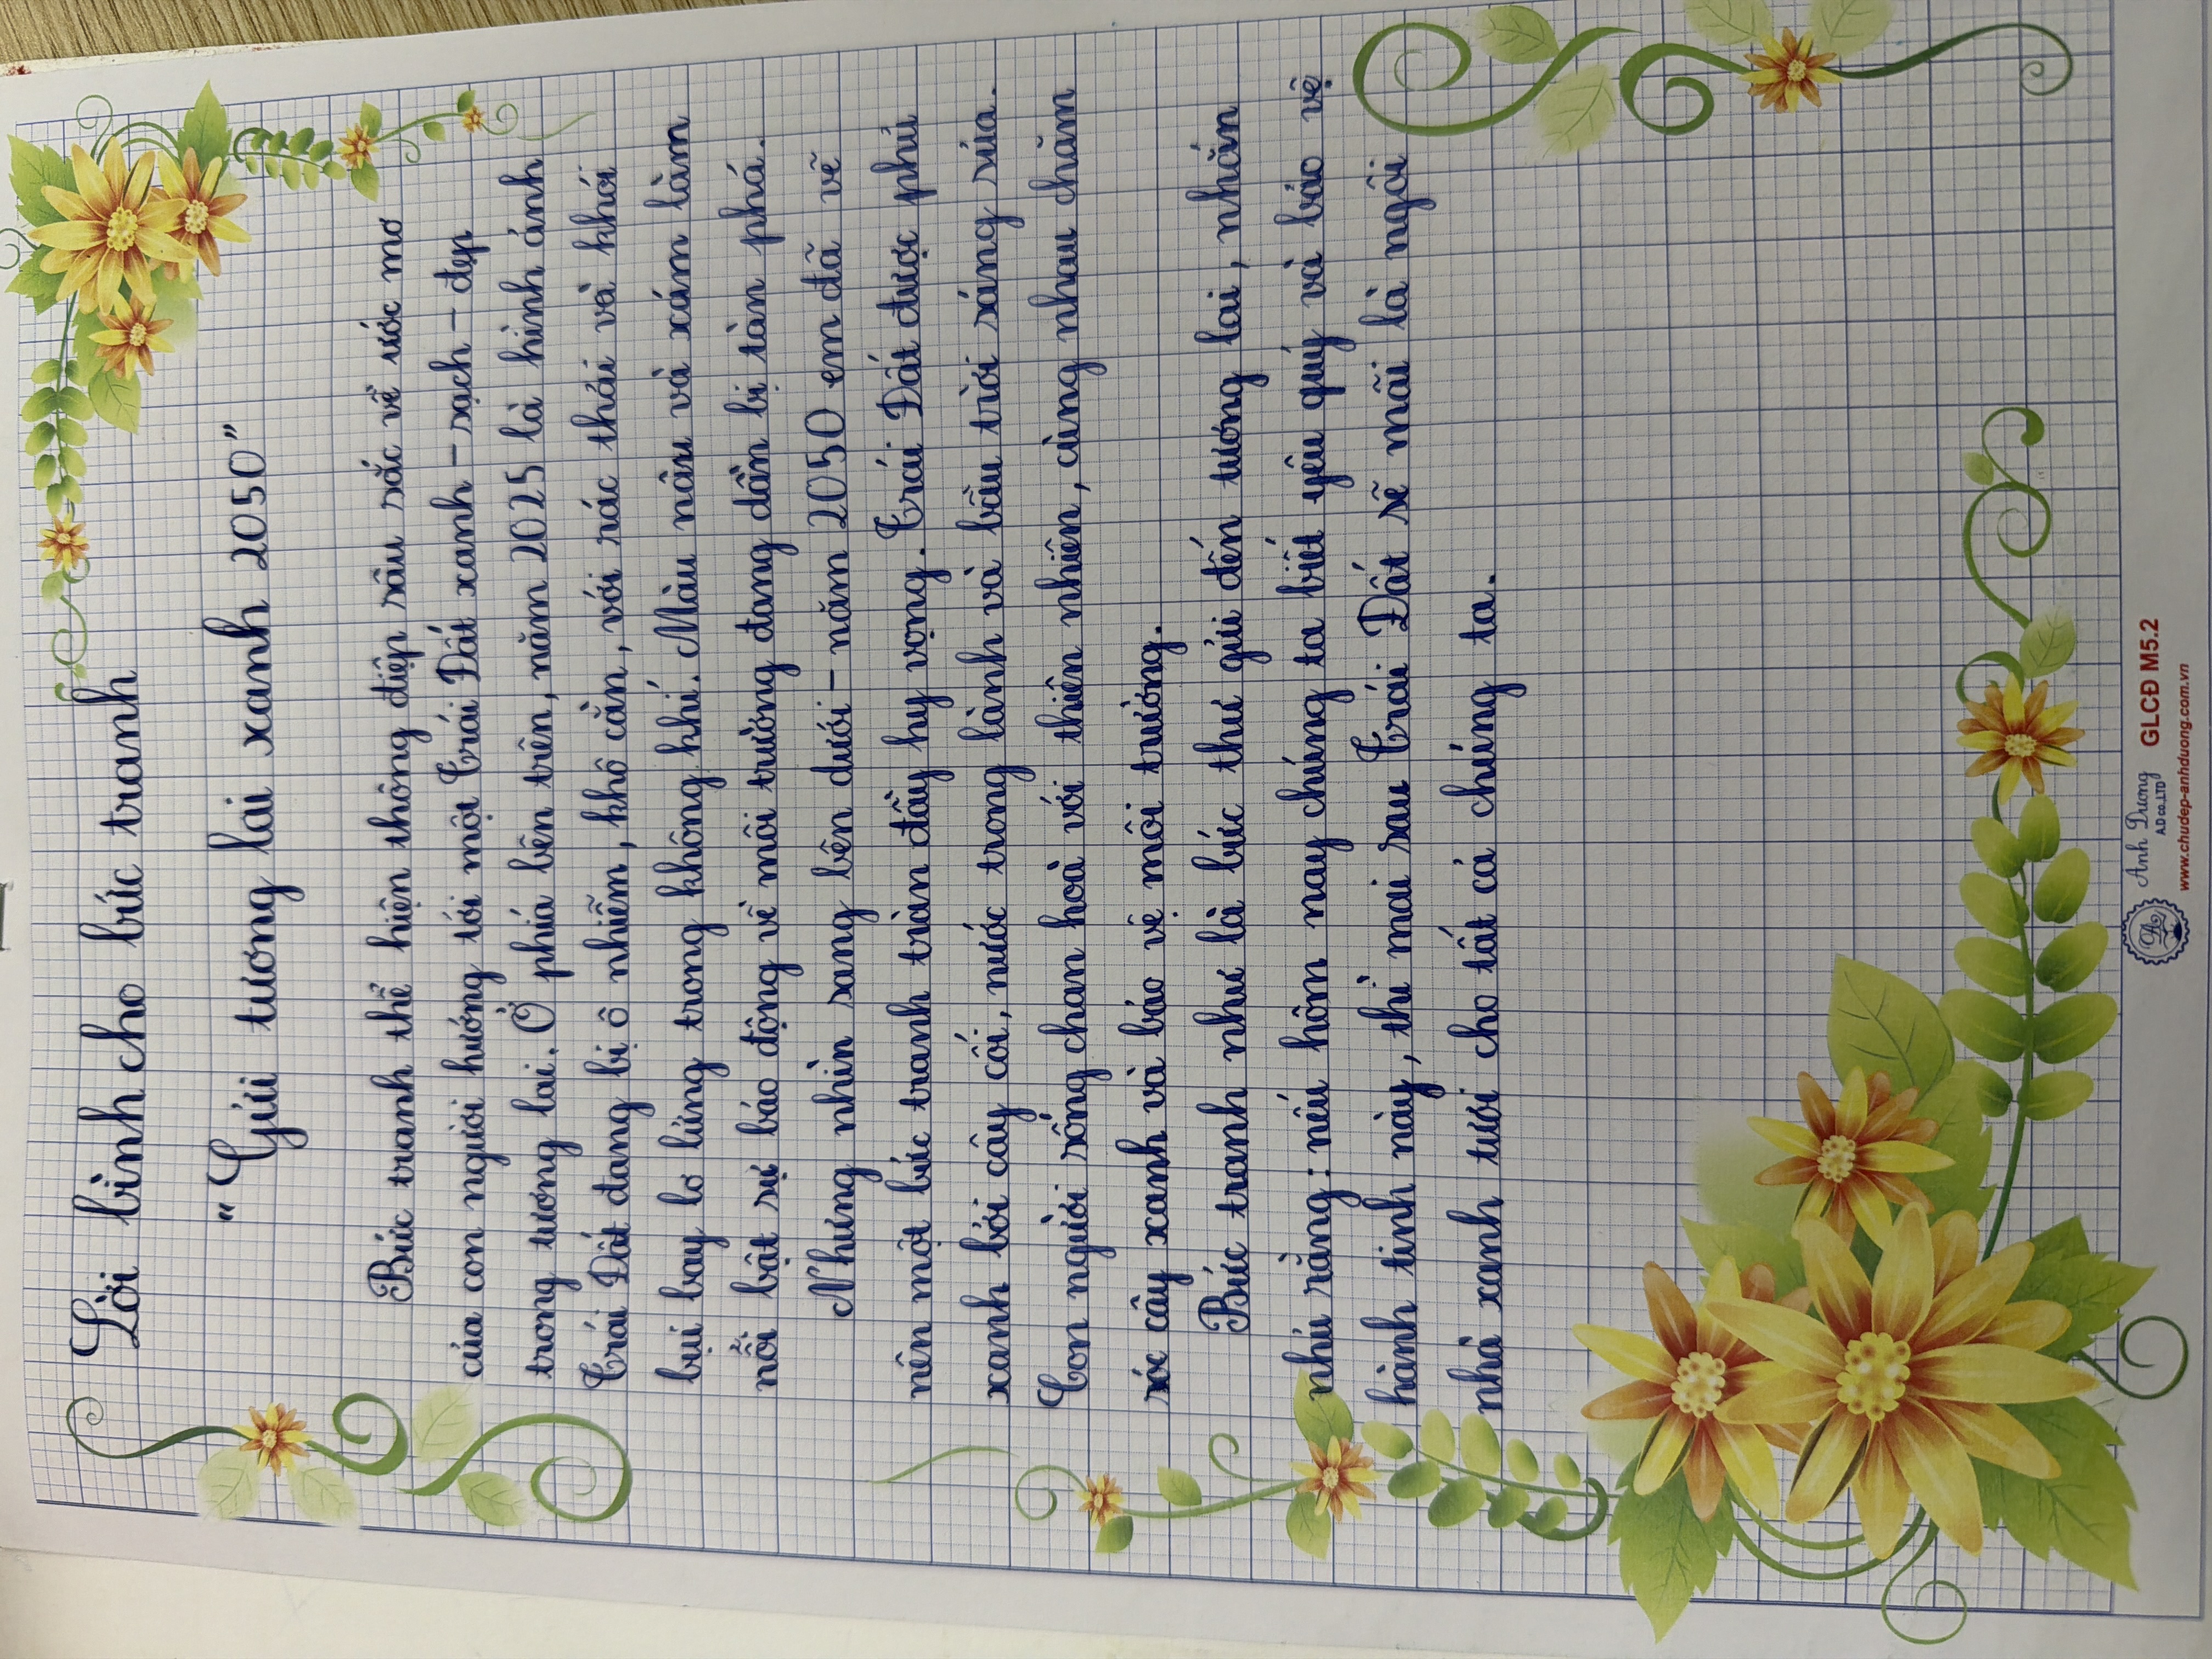 Lời bình cho bức tranh
"Gửi tương lai xanh 2050"
Bức tranh thể hiện thông điệp sâu sắc về ước mơ
của con người hướng tới một Trái Đất xanh - sạch - đẹp
trong tương lai. Ở phía bên trên, năm 2025 là hình ảnh
Trái Đất đang bị ô nhiễm, khô cằn, với rác thải và khói
bụi bay lơ lửng trong không khí. Màu nâu và xám làm
nổi bật sự báo động về môi trường đang dần bị tàn phá.
Nhưng nhìn sang bên dưới - năm 2050 em đã vẽ
nên một bức tranh tràn đầy hy vọng. Trái Đất được phủ
xanh bởi cây cối, nước trong lành và bầu trời sáng sủa.
Con người sống chan hoà với thiên nhiên, cùng nhau chăm
sóc cây xanh và bảo vệ môi trường.
Bức tranh như là bức thư gửi đến tương lai, nhắn
nhủ rằng: nếu hôm nay chúng ta biết yêu quý và bảo vệ
hành tinh này, thì mai sau Trái Đất sẽ mãi là ngôi
nhà xanh tươi cho tất cả chúng ta.
Ánh Dương GLCĐ M5.2
A.D co.,LTD
www.chudep-anhduong.com.vn